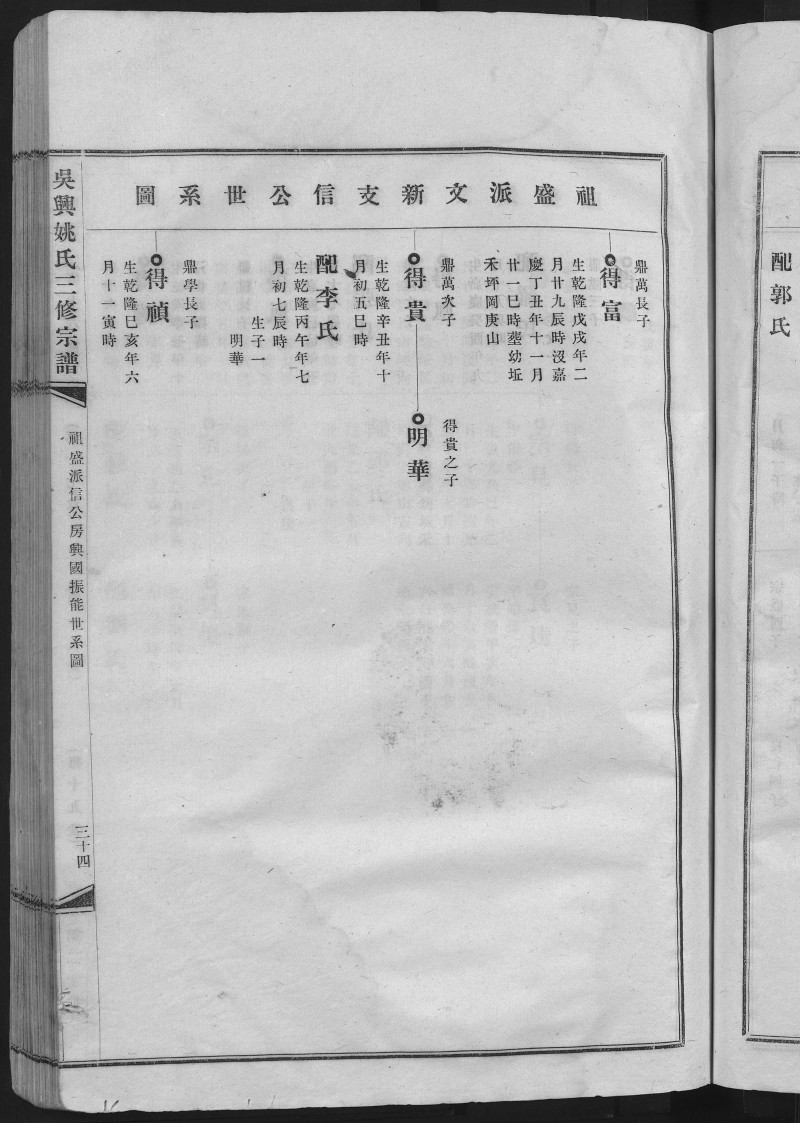 配郭氏
祖盛派文新支信公世系圖
鼎萬長子
得富
生乾隆戊戌年二
月廿九辰時沒嘉
慶丁丑年十一月
廿一巳時塟幼坵
禾坪岡庚山
鼎萬次子
得貴
生乾隆辛丑年十
月初五巳時
配李氏
生乾隆丙午年七
月初七辰時
生子一
明華
得貴之子
明華
鼎學長子
得禎
生乾隆巳亥年六
月十一寅時
吳興姚氏三修宗譜
祖盛派信公房興國振能世系圖
三十四